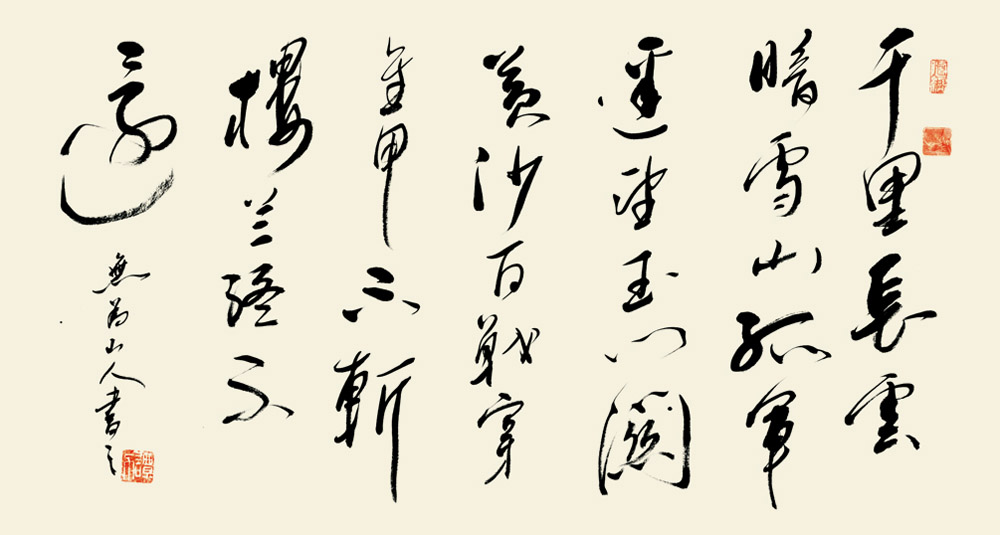 千里長雲
暗雪山孤軍
遥望玉门關
黄沙百戰穿
金甲不斬
樓兰終不
還
無為山人書之